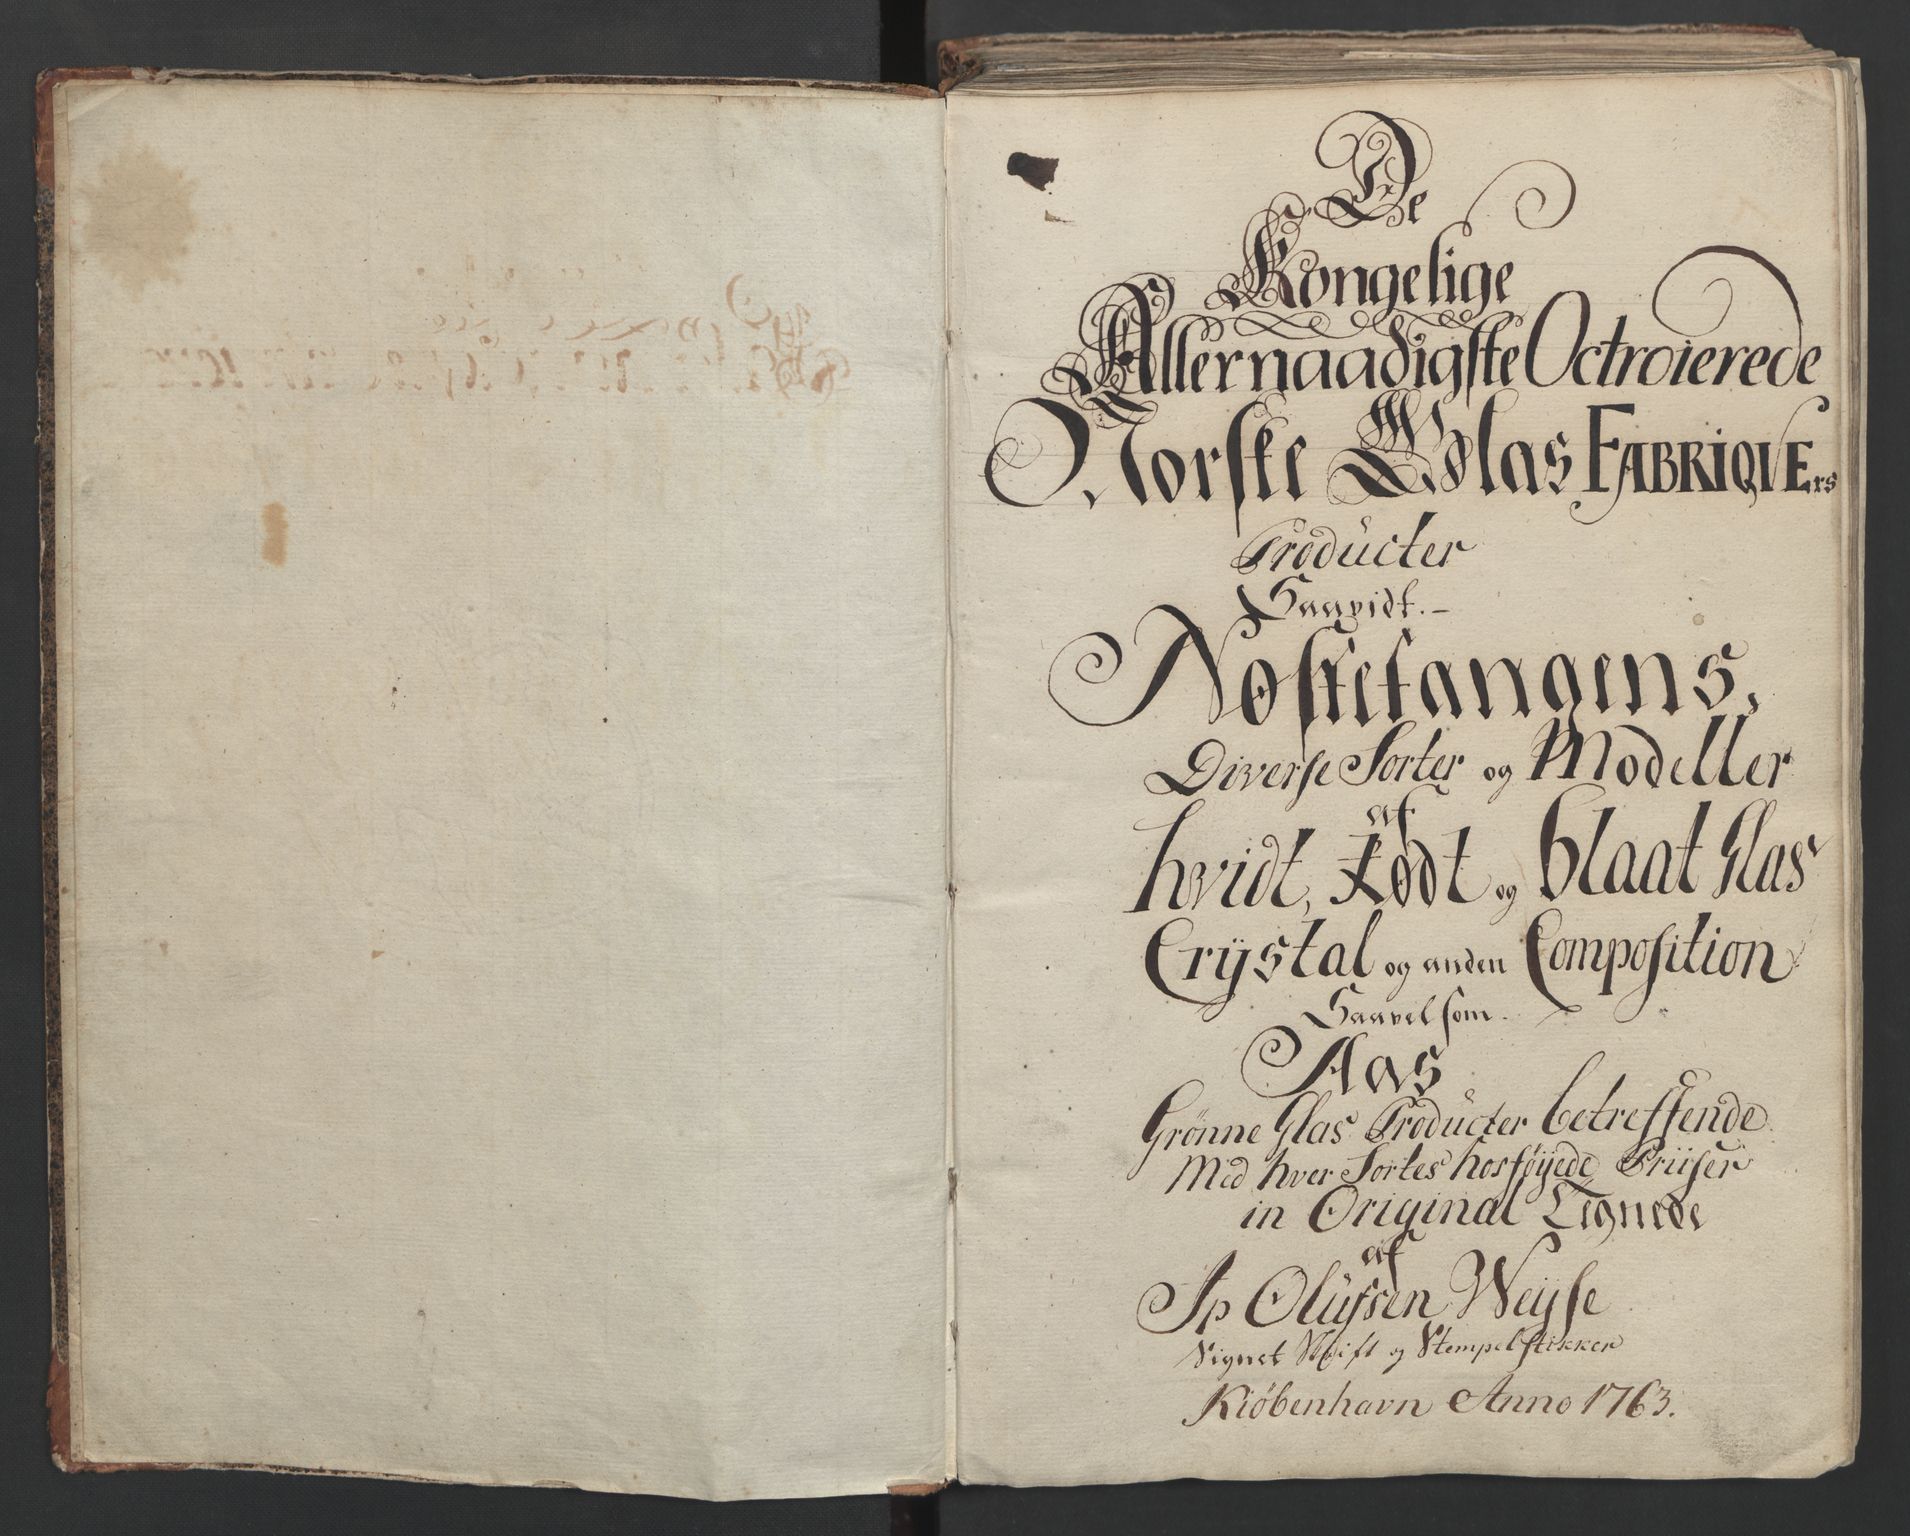 De
Kongelige
Allernaadigste Octroierede
Norske Glas FABRIQVErs
Producter
Saavidt.-
Nøstetangens,
Diverse Sorter og Modeller
af
hvidt, Rødt og blaat Glas
Crÿstal og anden Composition
Saavel som.
Aas
Grønne Glas Producter betreffende
Med hver Sortes hosføÿede Priiser
in Original Tegnede
af
Ip Olüfsen Weÿse
Signet Skrift og Stempelstikker
Kiöbenhavn Anno 1763.